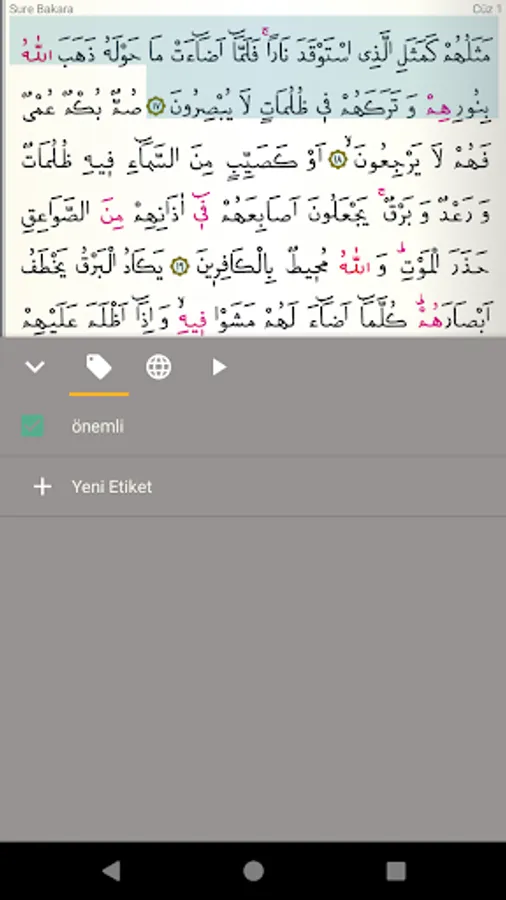 Sure Bakara Cüz 1
مَثَلُهُمْ كَمَثَلِ الَّذِى اسْتَوْقَدَ نَارًاۚ فَلَمَّٓا اَضَٓاءَتْ مَا حَوْلَهُ ذَهَبَ اللّٰهُ
بِنُورِهِمْ وَ تَرَكَهُمْ فٖى ظُلُمَاتٍ لَا يُبْصِرُونَ ﴿١٧﴾ صُمٌّ بُكْمٌ عُمْىٌ
فَهُمْ لَا يَرْجِعُونَۙ ﴿١٨﴾ اَوْ كَصَيِّبٍ مِنَ السَّمَٓاءِ فٖيهِ ظُلُمَاتٌ
وَ رَعْدٌ وَ بَرْقٌۚ يَجْعَلُونَ اَصَابِعَهُمْ فٖٓى اٰذَانِهِمْ مِنَ الصَّوَاعِقِ
حَذَرَ الْمَوْتِؕ وَ اللّٰهُ مُحٖيطٌ بِالْكَافِرٖينَ ﴿١٩﴾ يَكَادُ الْبَرْقُ يَخْطَفُ
اَبْصَارَهُمْؕ كُلَّمَٓا اَضَٓاءَ لَهُمْ مَشَوْا فٖيهِۙ وَ اِذَٓا اَظْلَمَ عَلَيْهِمْ
önemli
Yeni Etiket